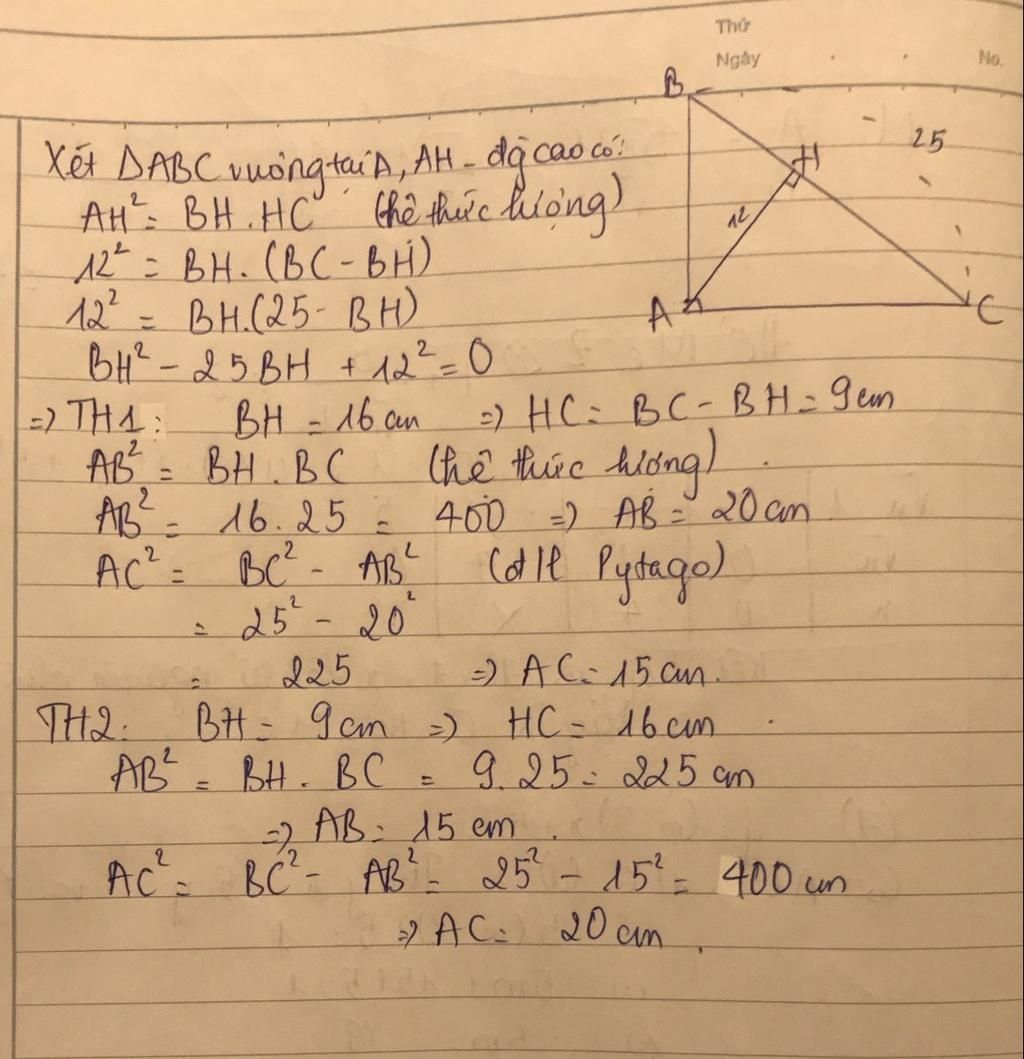 Thứ
Ngày
No.
B
H
25
12
A
C
Xét ΔABC vuông tại A, AH - đg cao có:
AH² = BH . HC (hê thức lượng)
12² = BH . (BC - BH)
12² = BH.(25 - BH)
BH² - 25BH + 12² = 0
=> TH1: BH = 16 cm => HC = BC - BH = 9 cm
AB² = BH . BC (hê thức lương)
AB² = 16 . 25 = 400 => AB = 20 cm
AC² = BC² - AB² (đ lt Pytago)
= 25² - 20²
= 225 => AC = 15 cm.
TH2: BH = 9 cm => HC = 16 cm
AB² = BH . BC = 9 . 25 = 225 cm
=> AB = 15 cm .
AC² = BC² - AB² = 25² - 15² = 400 cm
=> AC = 20 cm .